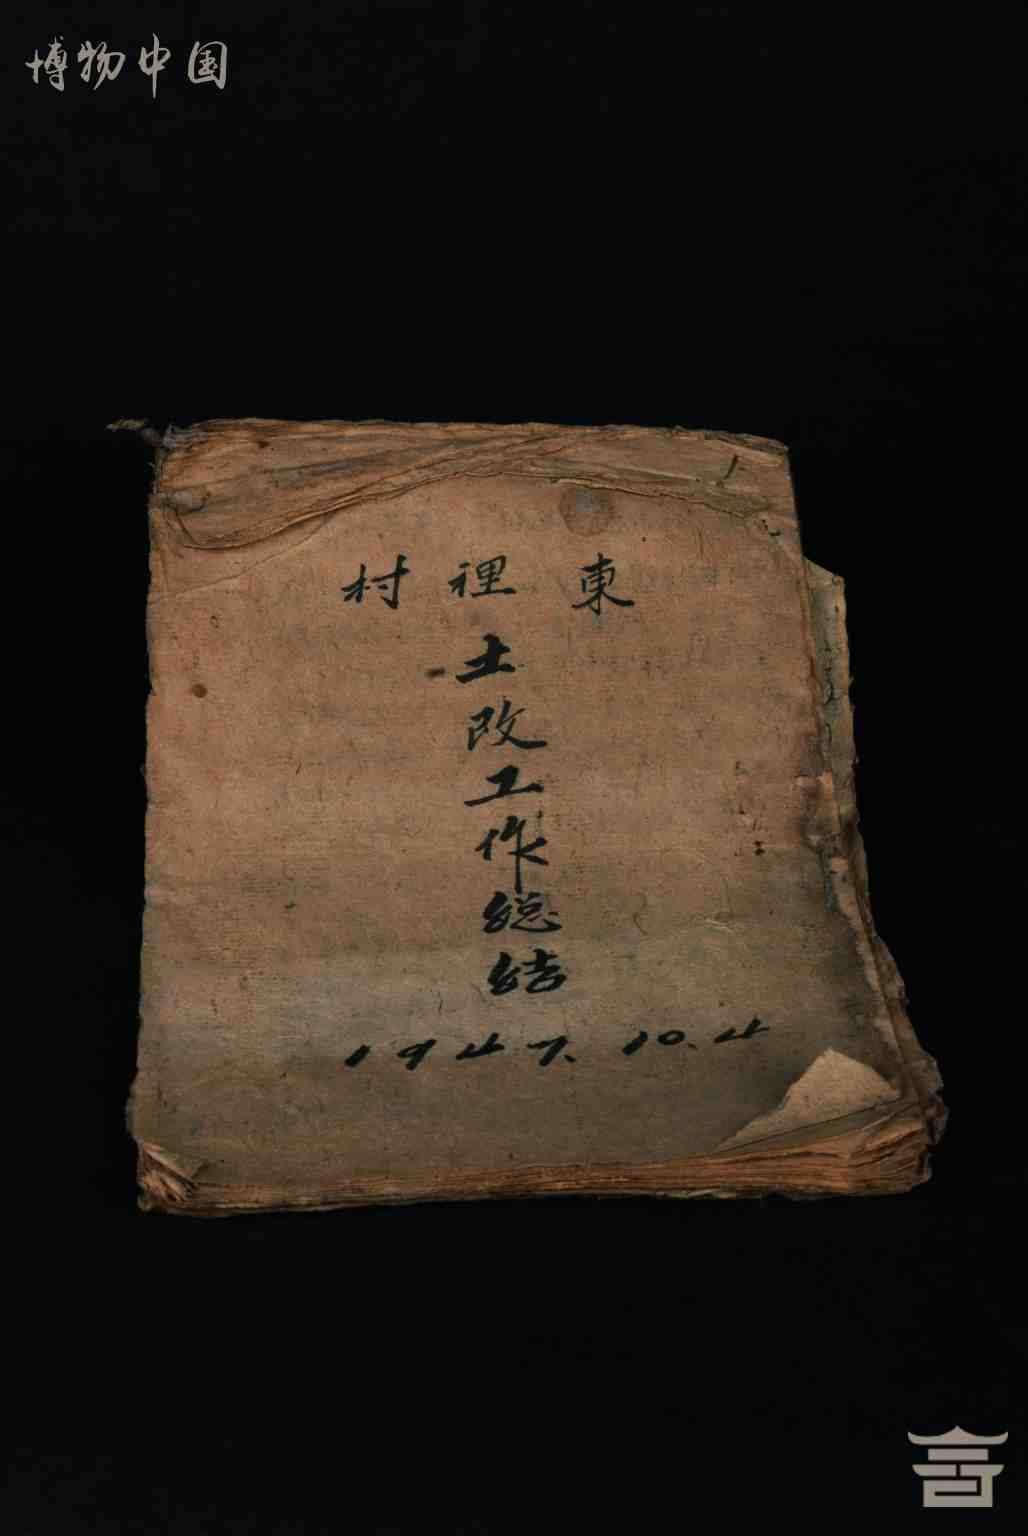 博物中国
東裡村
土改工作総结
1947.10.4